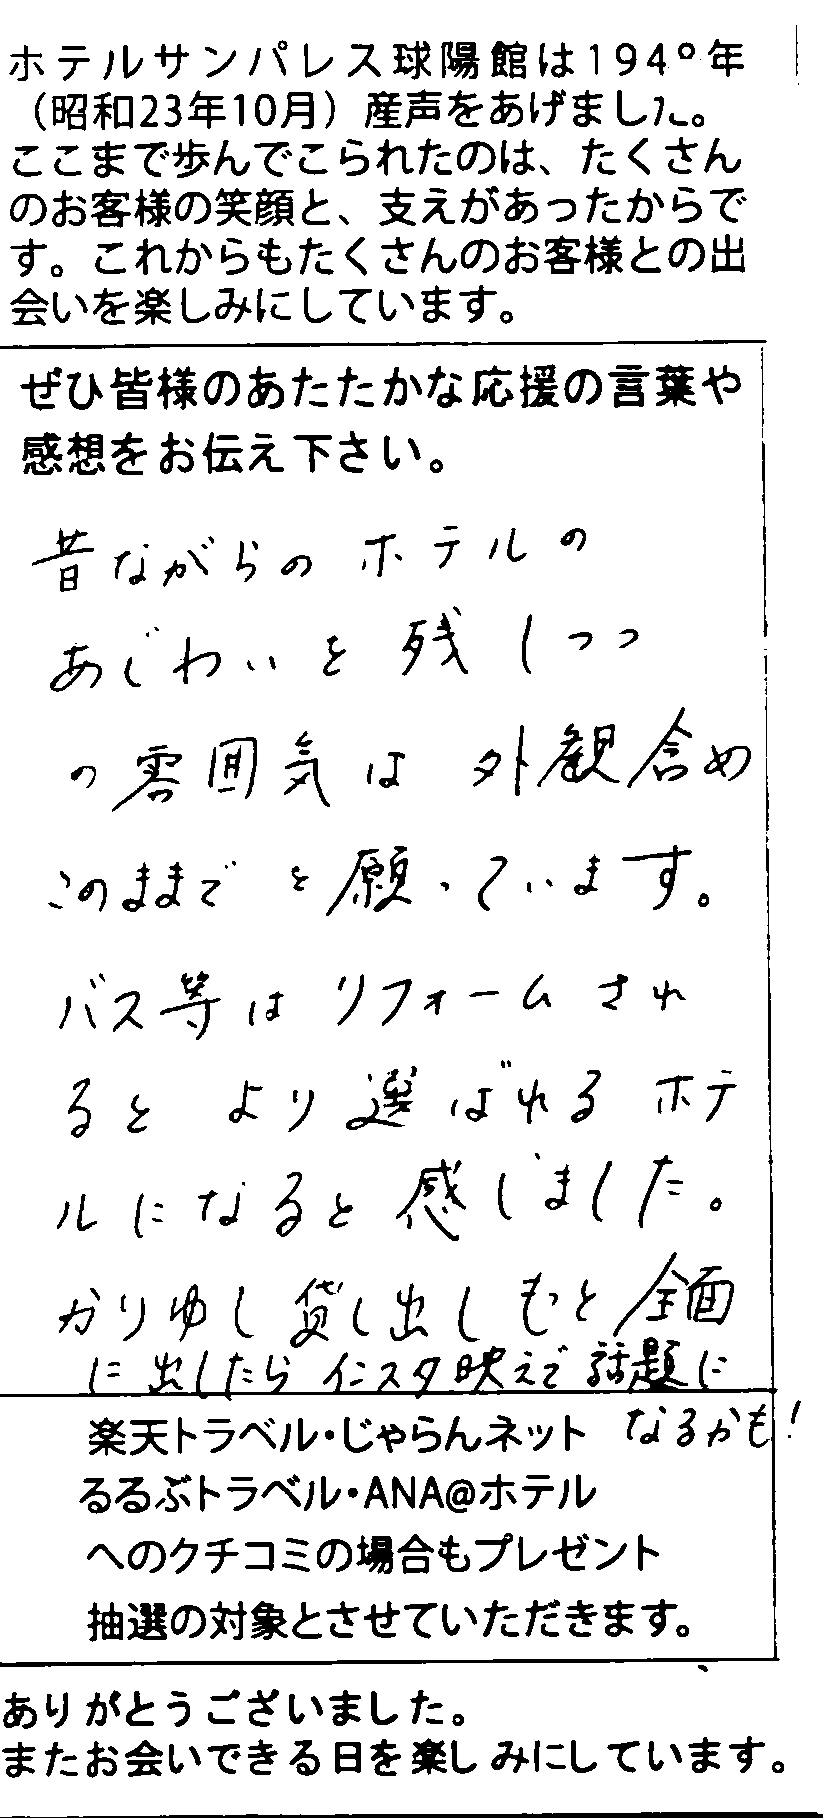 ホテルサンパレス球陽館は194°年
（昭和23年10月）産声をあげました。
ここまで歩んでこられたのは、たくさん
のお客様の笑顔と、支えがあったからで
す。これからもたくさんのお客様との出
会いを楽しみにしています。
ぜひ皆様のあたたかな応援の言葉や
感想をお伝え下さい。
昔ながらのホテルの
あじわいを残しつつ
の雰囲気は外観含め
このままでを願っています。
バス等はリフォームされ
るとより選ばれるホテ
ルになると感じました。
かりゆし貸し出しもと全面
に出したらインスタ映えで話題に
なるかも！
楽天トラベル・じゃらんネット
るるぶトラベル・ANA@ホテル
へのクチコミの場合もプレゼント
抽選の対象とさせていただきます。
ありがとうございました。
またお会いできる日を楽しみにしています。